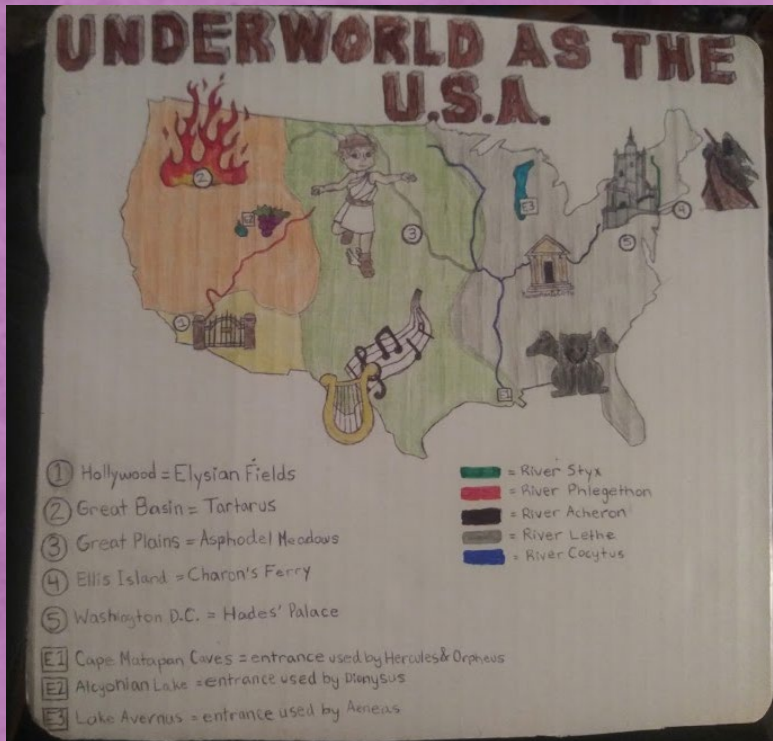 UNDERWORLD AS THE
U.S.A.
2
E2
3
E3
4
5
1
E1
1 Hollywood = Elysian Fields
2 Great Basin = Tartarus
3 Great Plains = Asphodel Meadows
4 Ellis Island = Charon's Ferry
5 Washington D.C. = Hades' Palace
E1 Cape Matapan Caves = entrance used by Hercules & Orpheus
E2 Alcyonian Lake = entrance used by Dionysus
E3 Lake Avernus = entrance used by Aeneas
= River Styx
= River Phlegethon
= River Acheron
= River Lethe
= River Cocytus